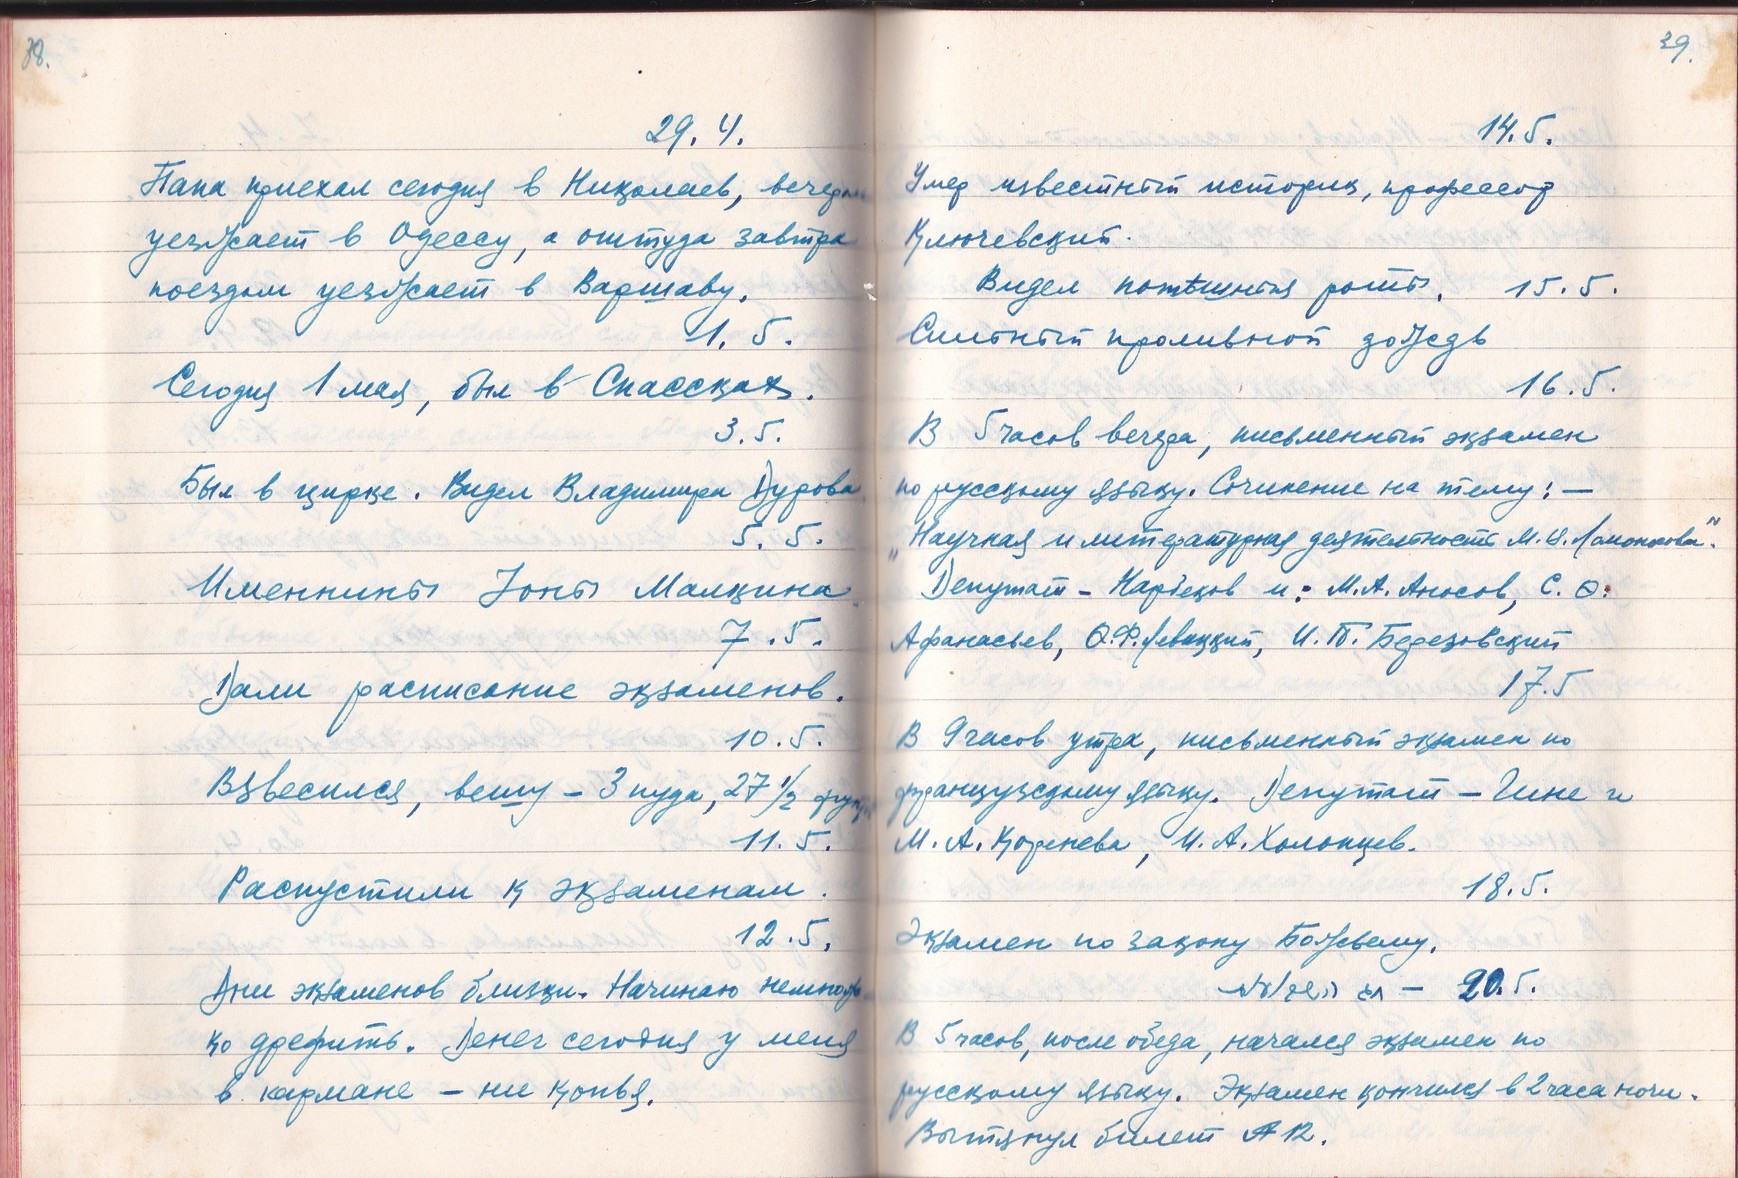 38.
29. 4.
Папа приехал сегодня в Николаев, вечером
уезжает в Одессу, а оттуда завтра
поездом уезжает в Варшаву.
1. 5.
Сегодня 1 мая, был в Спасских.
3. 5.
Был в цирке. Видел Владимира Дурова
5. 5.
Именины Јоны Малкина
7. 5.
Дали расписание экзаменов.
10. 5.
Взвесился, вешу – 3 пуда, 27 1/2
11. 5.
Распустили к экзаменам.
12. 5.
Дни экзаменов близки. Начинаю немнож
ко дрефить. Денег сегодня у меня
в кармане – ни копья.
39.
14. 5.
Умер известный историк, профессор
Ключевский.
Видел потѣшныя роты. 15. 5.
Сильный проливной дождь
16. 5.
В 5 часов вечера, письменный экзамен
по русскому языку. Сочинение на тему: —
„Научная и литературная деятельность М. Ломоносова".
Депутат – и: М. А. Аносов, С. Ѳ.
Афанасьев, О. Ф. Левицкий, И. П. Березовский
17. 5
В 9 часов утра, письменный экзамен по
французскому языку. Депутат – Гине и
М. А. Коренева, И. А. Холопцев.
18. 5.
Экзамен по закону Божьему.
– 20. 5.
В 5 часов, после обеда, начался экзамен по
русскому языку. Экзамен кончился в 2 часа ночи.
Вытянул билет № 12.